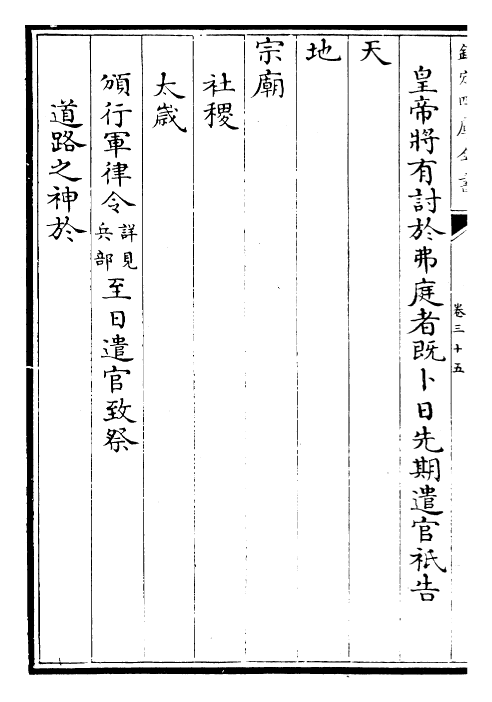 欽定四庫全書
卷三十五
皇帝將有討於弗庭者既卜日先期遣官祇告
天
地
宗廟
社稷
太歲
頒行軍律令詳見兵部至日遣官致祭
道路之神於